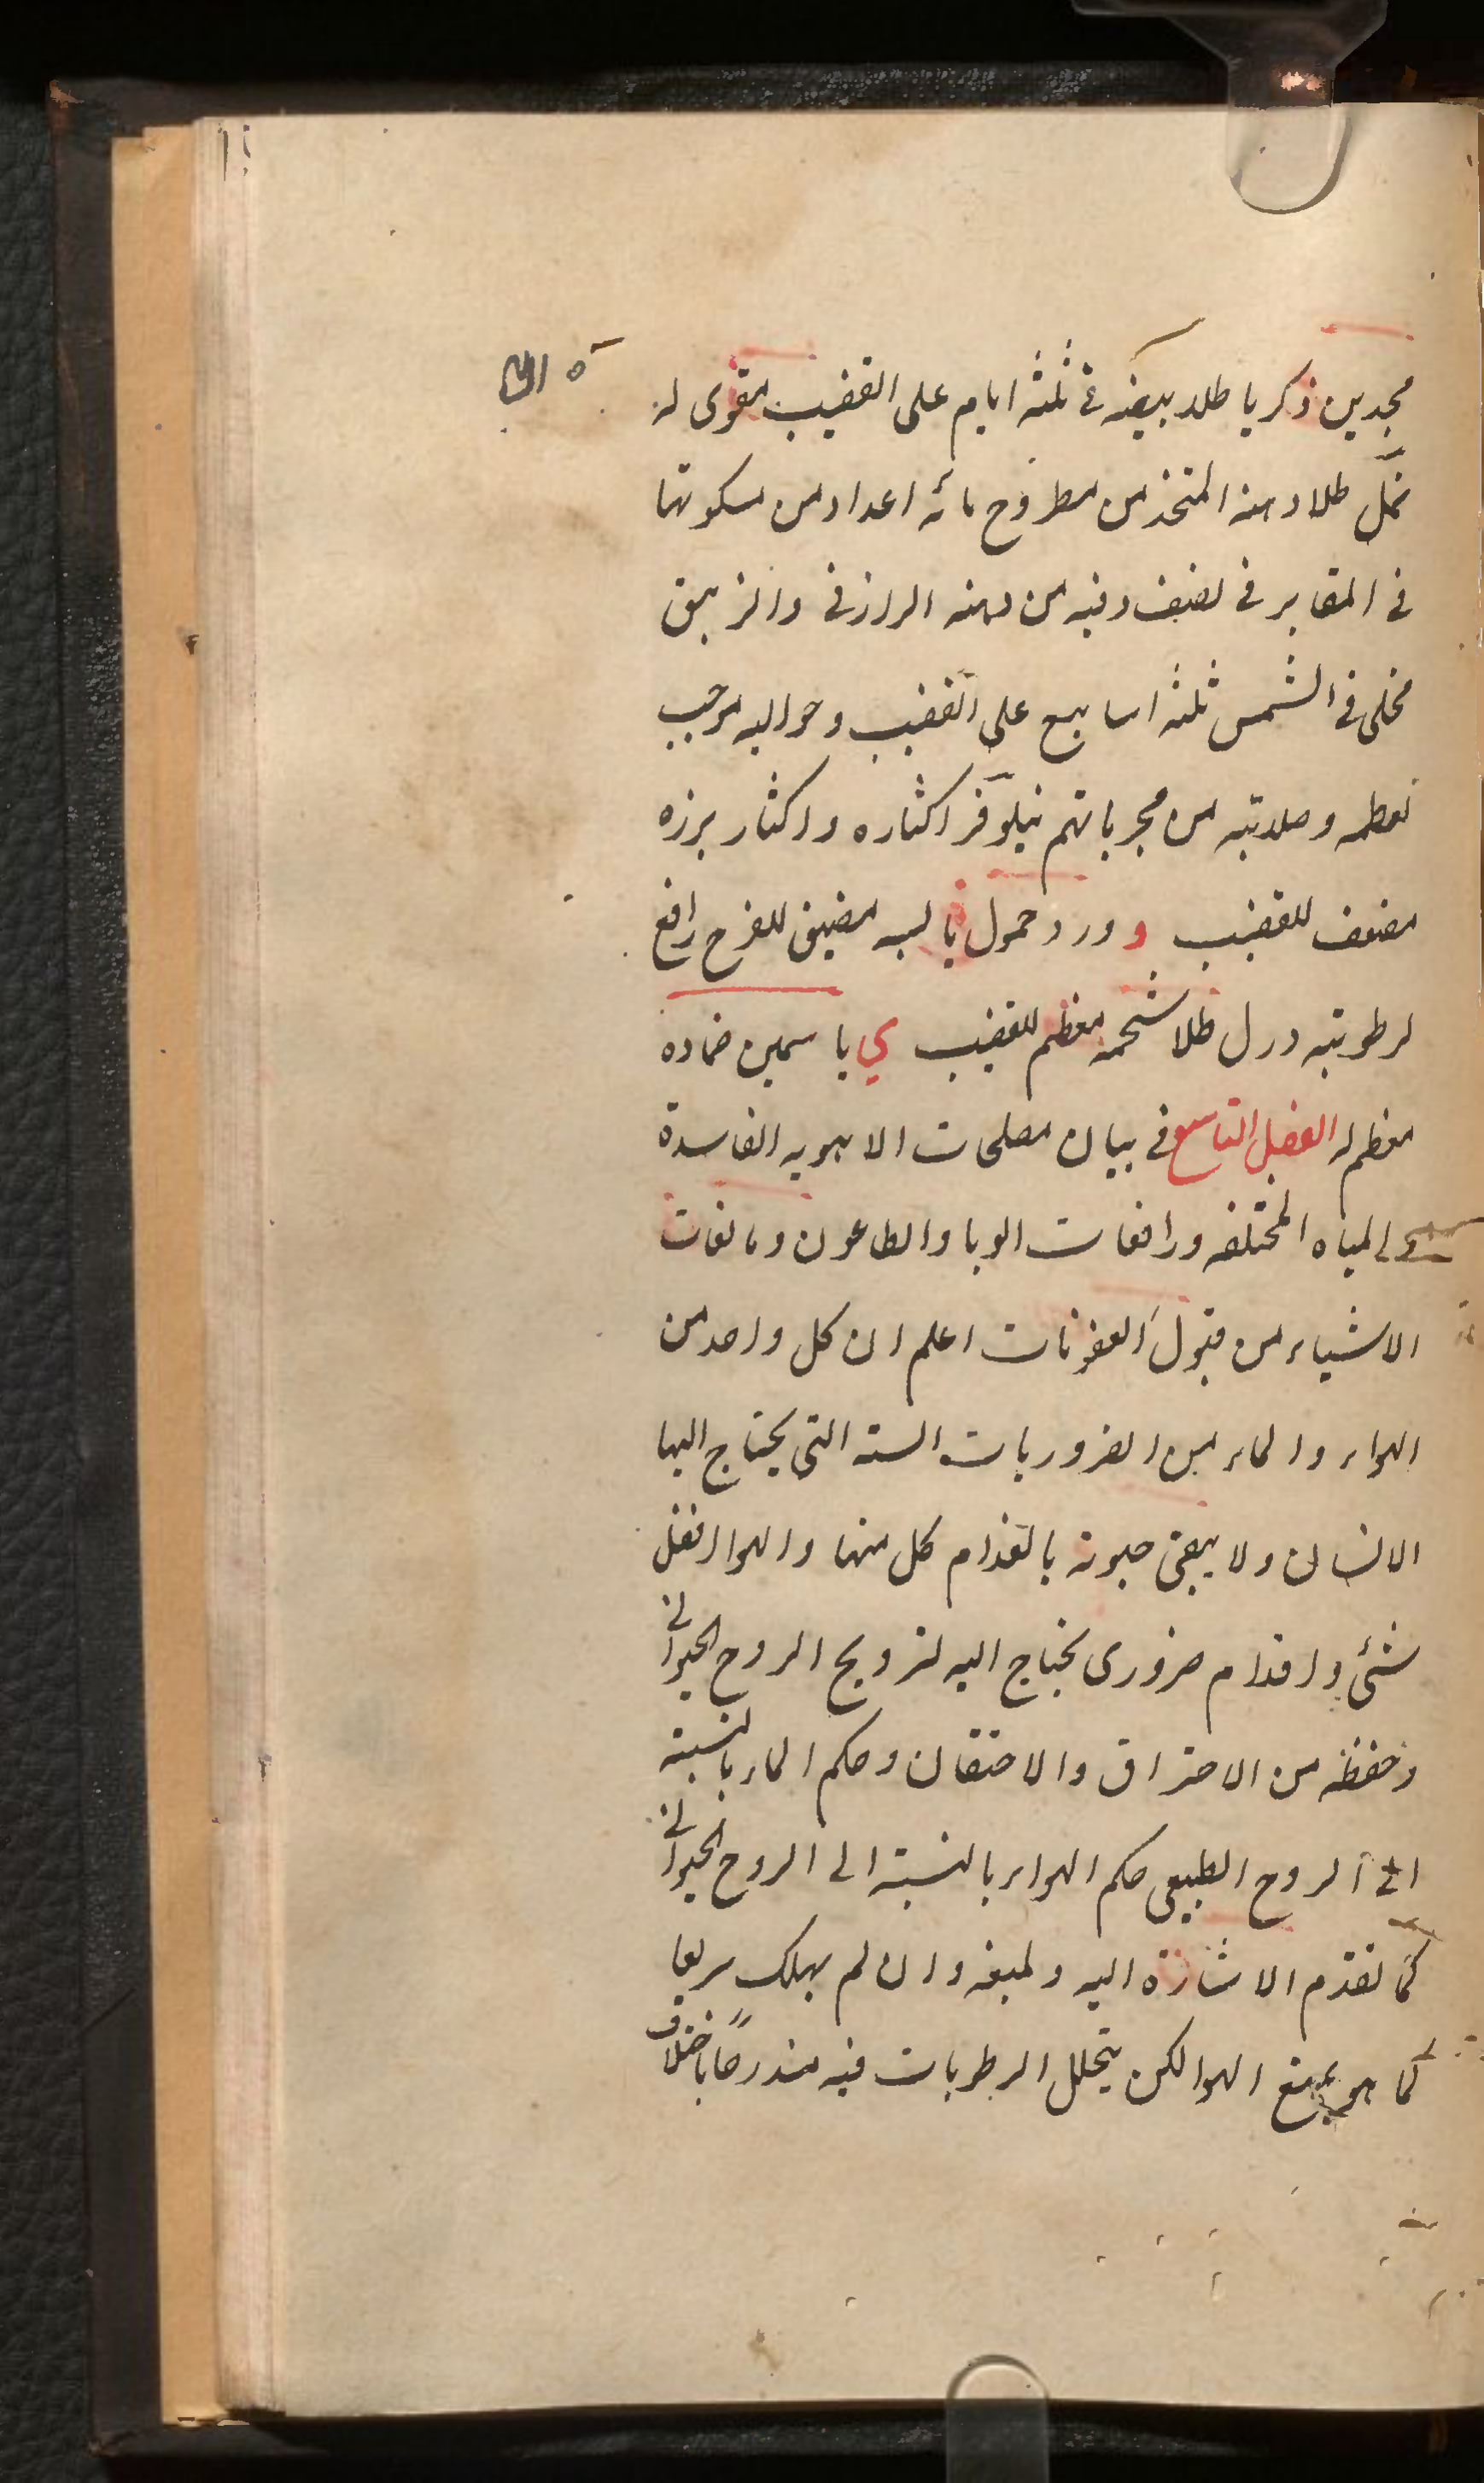 محمد بن زكريا طلاء بيضه فى ثلثه ايام على القضيب مقوى له
نمل طلا دهنه المتخذ من مطروح مائه اعداد من سكونها
فى المقابر فى نصف وقيه من دهنه الرازقى والزيبق
مخلى فى الشمس ثلثه اسابيع على القضيب وحواليه موجب
لعظمه وصلابته من مجرباتهم نيلوفر اكثاره واكثار بزره
مضعف للقضيب و ورد حمول يابسه مضيق للفرج رافع
لرطوبته ورل طلا شحمه معظم للقضيب ى ياسمين ضماده
معظم له الفصل التاسع فى بيان مصلحات الاهويه الفاسدة
والمياه المختلفه ورافعات الوبا والطاعون ومانعات
الاشياء من قبول العفونات اعلم ان كل واحد من
الهواء والماء من الضروريات السته التى يحتاج اليها
الانسان ولا يبقى حيوته بانعدام كل منها والهوا افضل
شئ واقدام ضرورى يحتاج اليه لترويح الروح الحيوانى
وحفظه من الاحتراق والاختقان وحكم الماء بالنسبة
الى الروح الطبيعى حكم الهواء بالنسبة الى الروح الحيوانى
كما تقدم الاشارة اليه ولمنعه وان لم يهلك سريعا
كما هو بمنع الهوا لكن يتحلل الرطوبات فيه مندرجا باختلاف